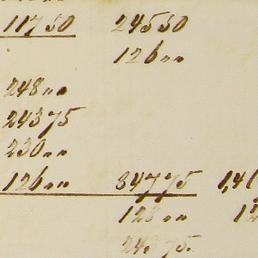 11750 24550
126 " "
248 " "
24375
230 " "
126 " " 34775 1,46
128 " " 12